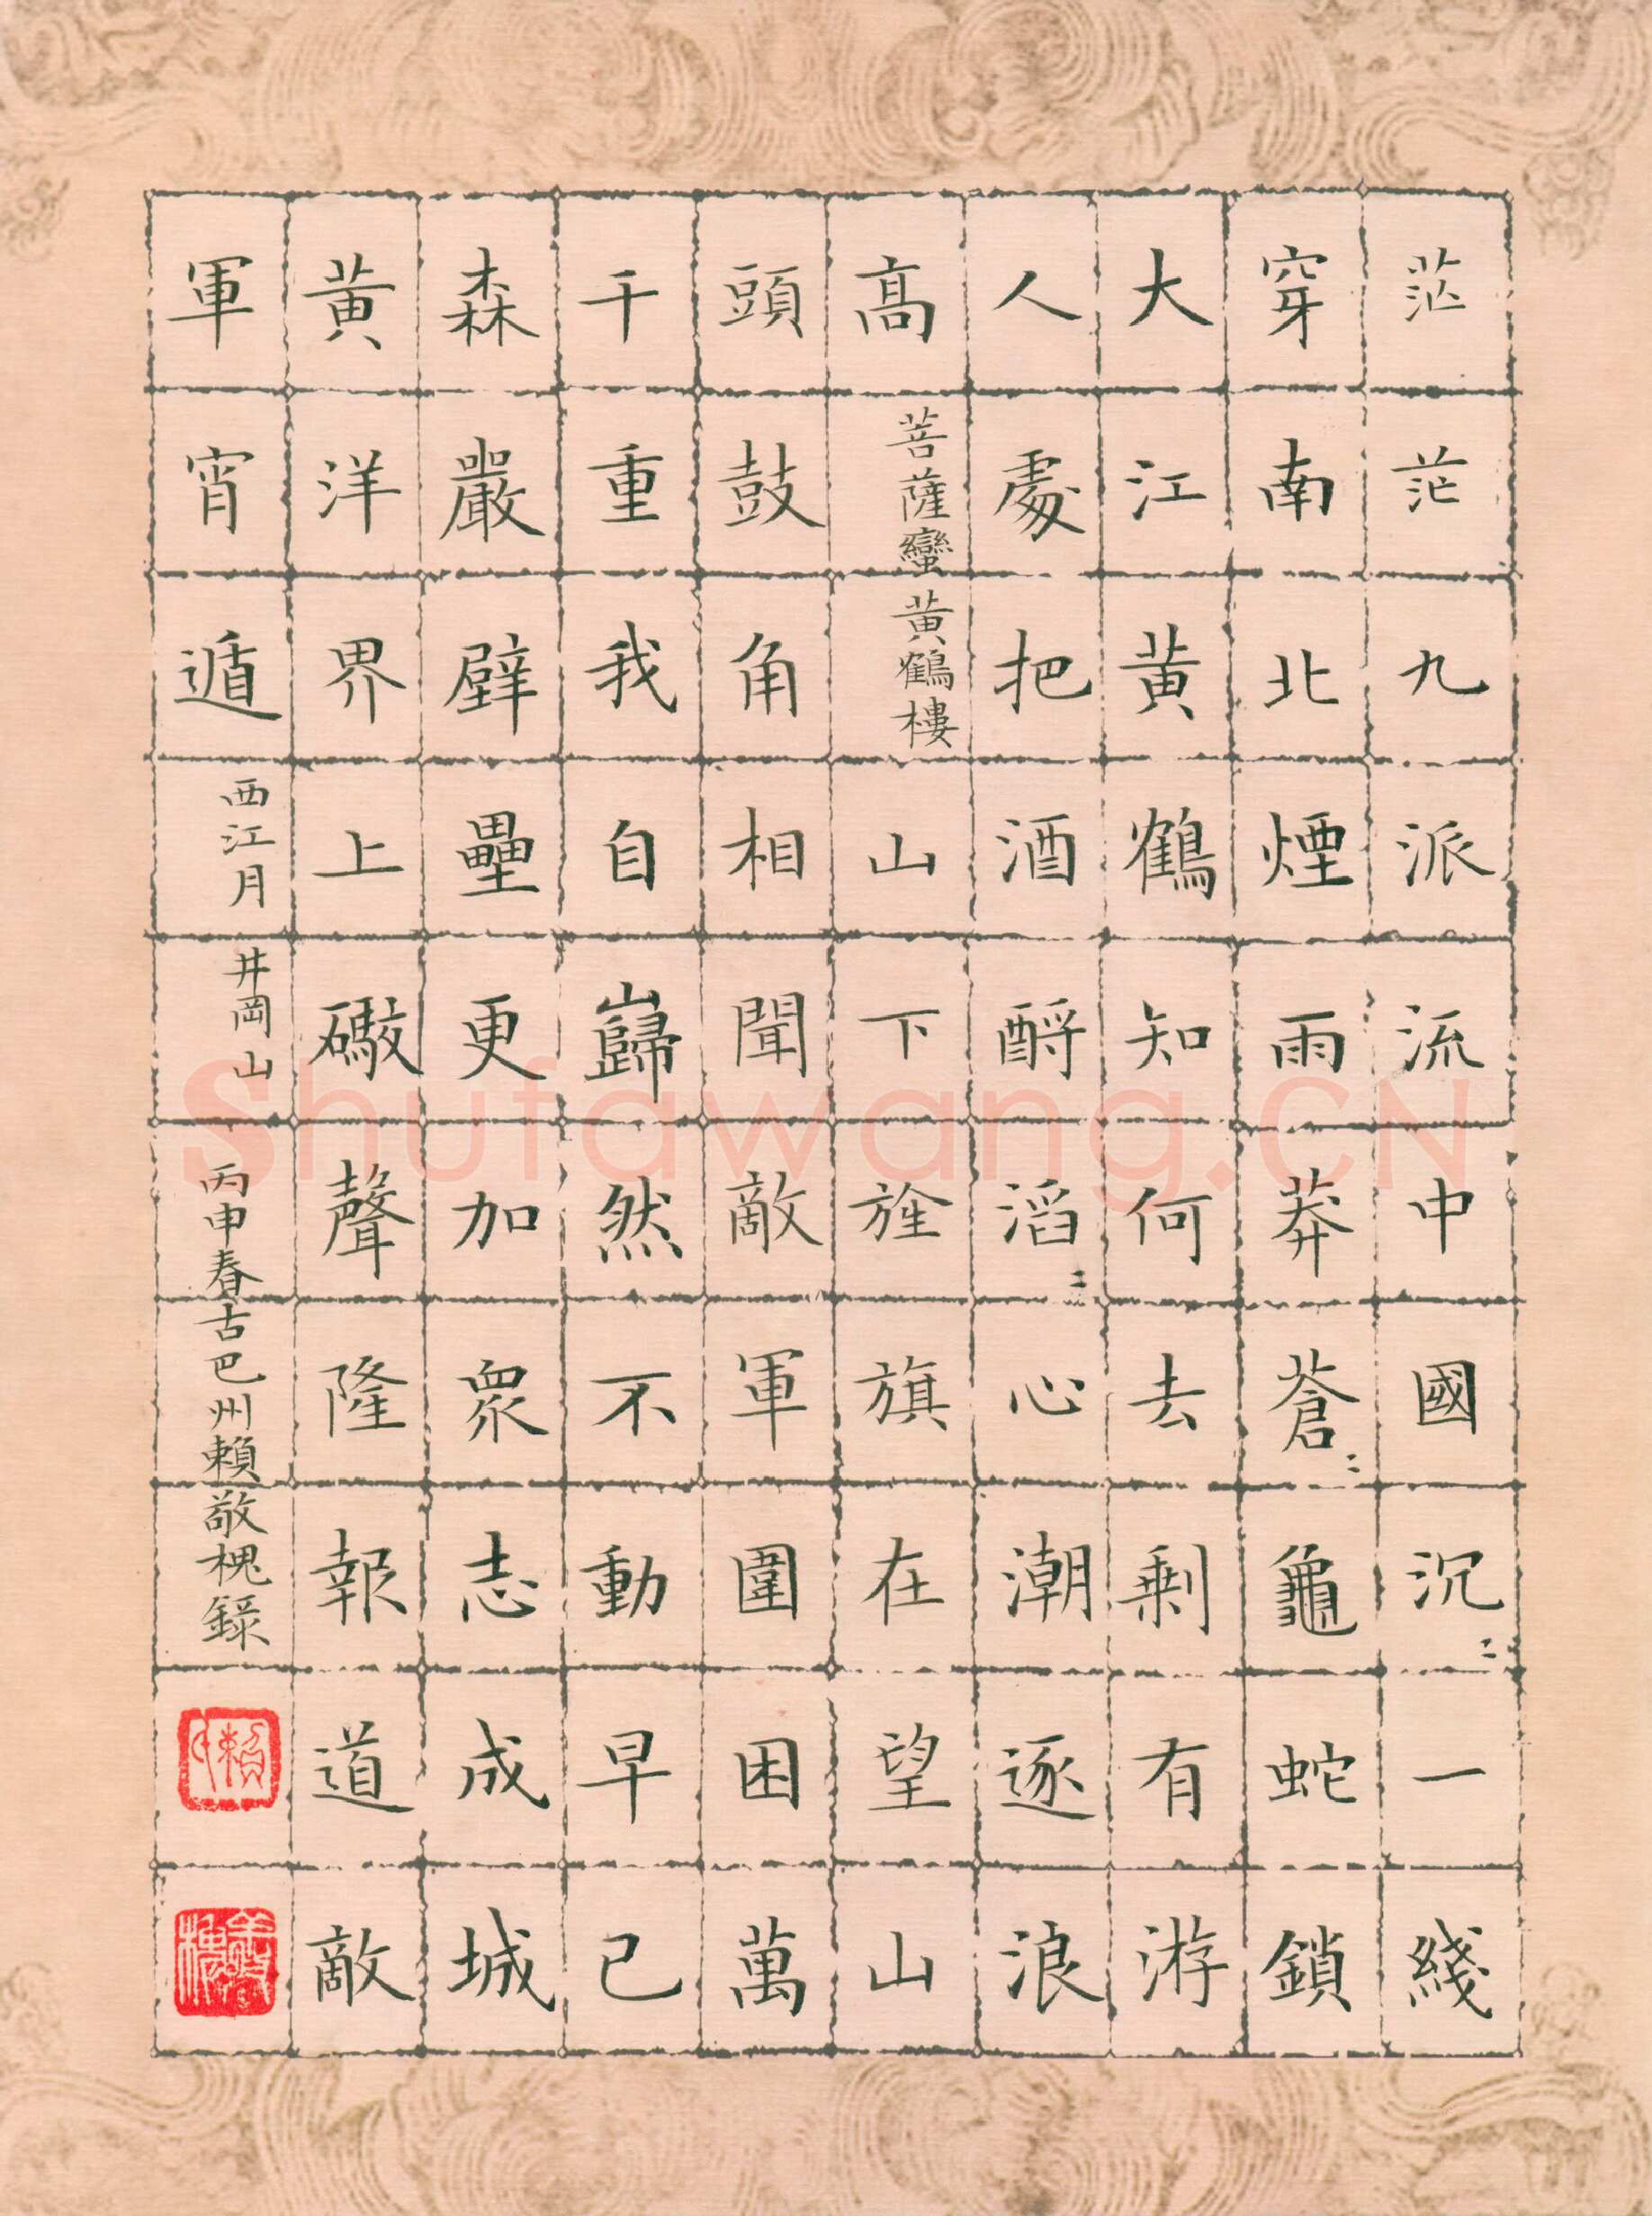 茫茫九派流中國沉〻一綫
穿南北煙雨莽蒼〻龜蛇鎖
大江黃鶴知何去剩有游
人處把酒酹滔〻心潮逐浪
高
菩薩蠻
黃鶴樓
山下旌旗在望山
頭鼓角相聞敵軍圍困萬
千重我自巋然不動早已
森嚴壁壘更加衆志成城
黃洋界上礮聲隆報道敵
軍宵遁
西江月
井岡山
丙申春古巴州賴敬槐錄
Shufawang.CN